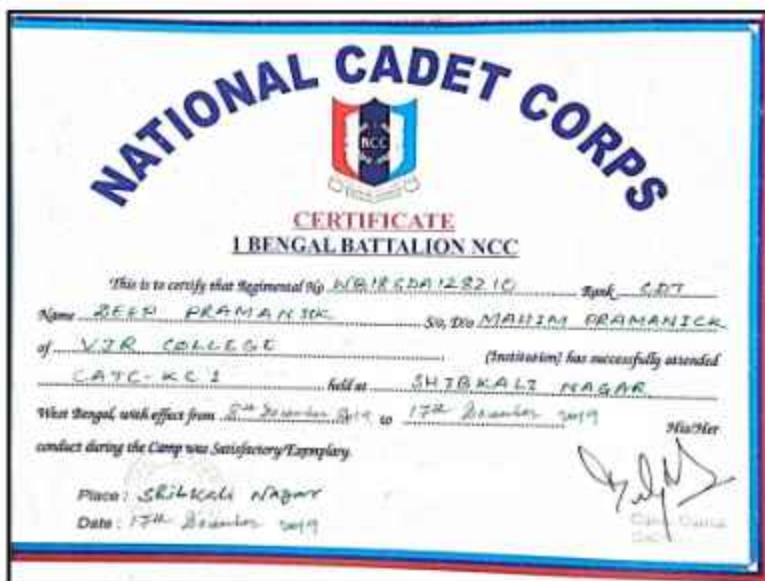 NATIONAL CADET CORPS
NCC
CERTIFICATE
1 BENGAL BATTALION NCC
This is to certify that Regimental No WB18SDA128210 Rank CDT
Name PRAMANICK S/o, D/o MAHIM PRAMANICK
of VJR COLLEGE (Institution) has successfully attended
CATC-KC 1 held at SHIBKALI NAGAR
West Bengal, with effect from 8th December 2019 to 17th December 2019 His/Her
conduct during the Camp was Satisfactory/Exemplary.
Place: Shibkali Nagar
Date: 17th December 2019
Camp